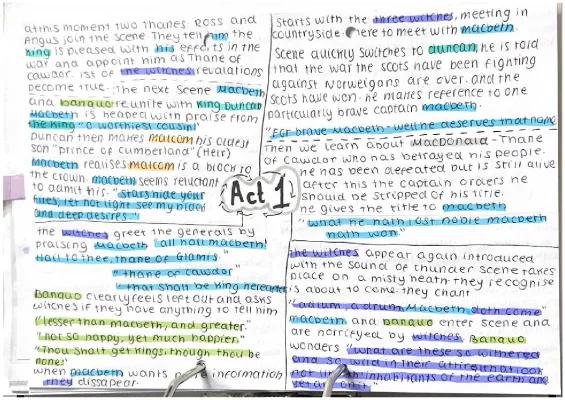 Starts with the three witches, meeting in
countryside. here to meet with macbeth
Scene quickly switches to duncan, he is told
that the war the scots have been fighting
against Norweigans are over. and the
scots have won. he makes reference to one
particularly brave captain macbeth.
"For brave Macbeth-well he deserves that name
Then we learn about MacDonald - Thane
of Cawdor who has betrayed his people.
he has been defeated but is still alive
after this the captain orders he
should be stripped of his title.
he gives the title to macbeth
"what he hath lost noble macbeth
hath won."
the witches appear again introduced
with the sound of thunder scene takes
place on a misty heath they recognise
is about to come they chant
"a drum, a drum, Macbeth doth come"
macbeth and banquo enter scene and
are horreyed by witches. Banquo
wonders "what are these so withered
and so wild in their attire, that look
not like th inhabitants of the earth and
yet are on it"
Act 1
at this moment two thanes: Ross and
Angus join the scene They tell him the
King is pleased with his efforts in the
war and appoint him as Thane of
cawdor. 1st of the witches revalations
become true. The next scene Macbeth
and banquo reunite with King Duncan
Macbeth is heaped with praise from
the king "O worthiest cousin"
Duncan then makes malcom his oldest
son "prince of cumberland" (Heir)
Macbeth realises malcom is a block to
the crown. macbeth seems reluctant
to admit this. "stars hide your
fires, let not light see my black
and deep desires."
the witches greet the generals by
praising Macbeth "all hail macbeth!
Hail to thee, thane of Glamis"
"thane of cawdor"
"that shall be king hereafter
Banquo clearly feels left out and asks
witches if they have anything to tell him
"lesser than macbeth, and greater."
"not so happy, yet much happier."
"Thou shalt get kings, though thou be
none:"
when macbeth wants more information
they dissapear.